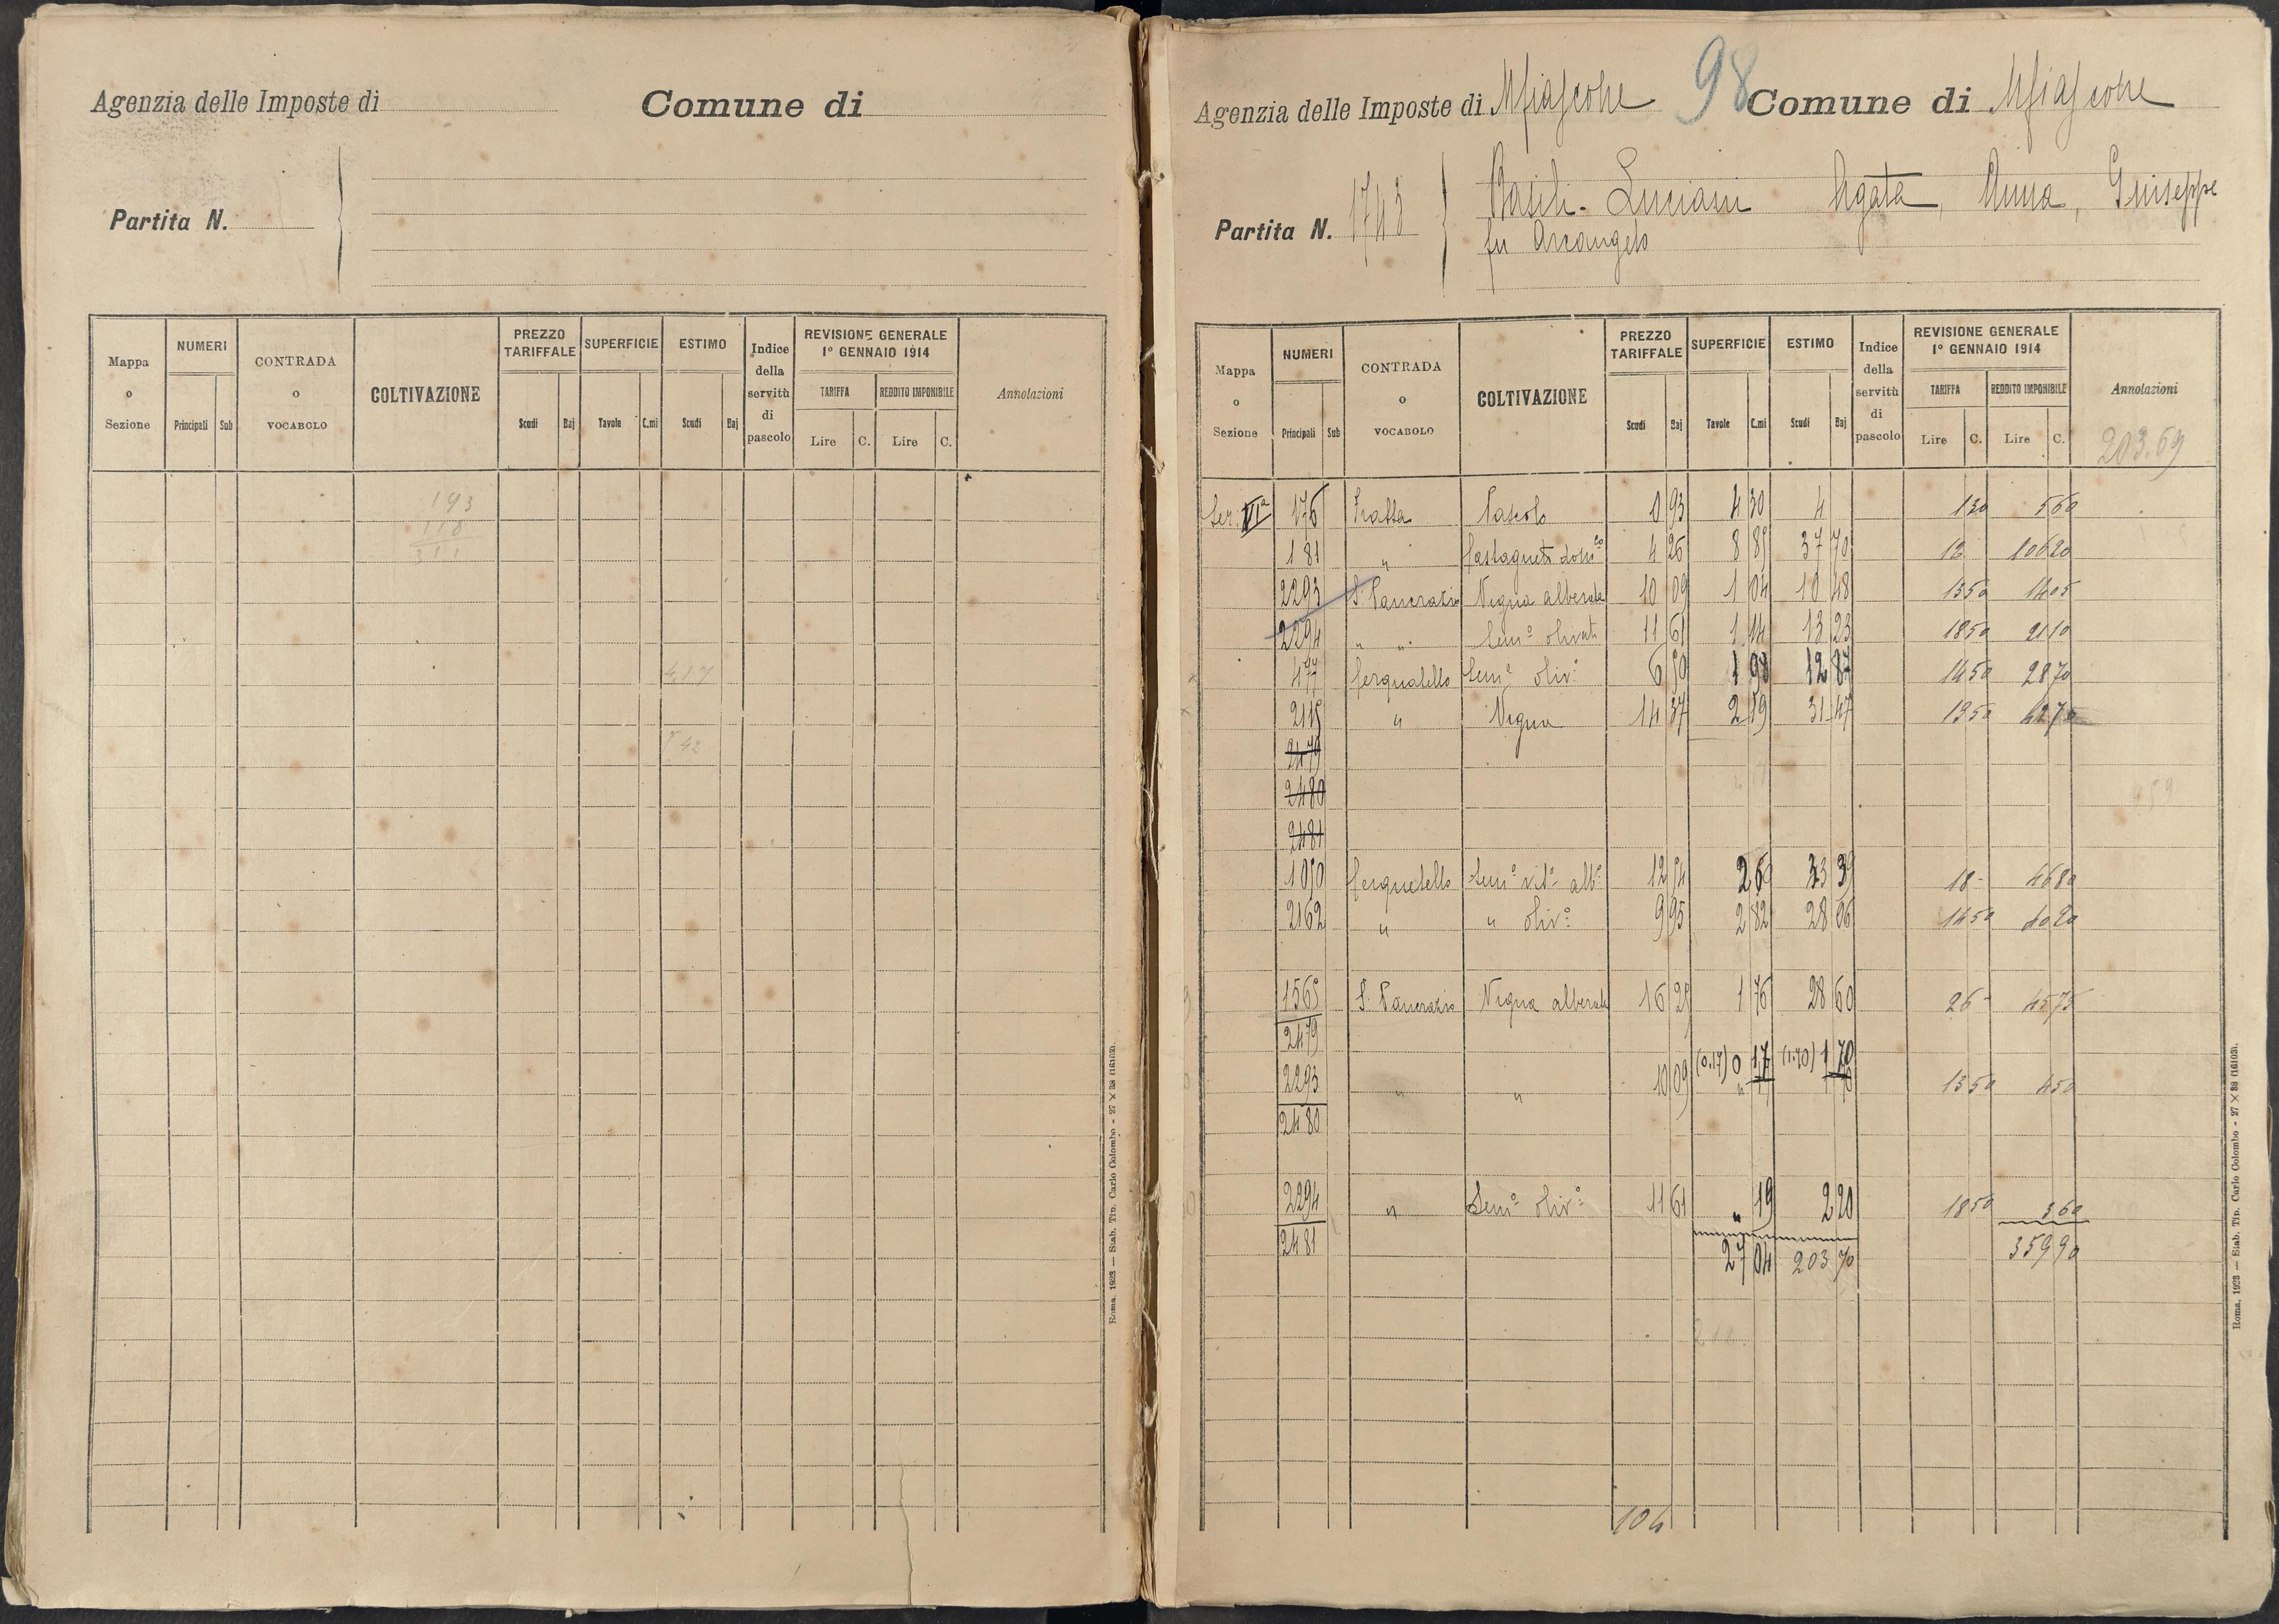 Agenzia delle Imposte di
Comune di
Partita N.
Mappa o Sezione
NUMERI
Principali Sub
CONTRADA o VOCABOLO
COLTIVAZIONE
PREZZO TARIFFALE
Scudi Baj
SUPERFICIE
Tavole C.mi
ESTIMO
Scudi Baj
Indice della servitù di pascolo
REVISIONE GENERALE
1º GENNAIO 1914
TARIFFA
Lire C.
REDDITO IMPONIBILE
Lire C.
Annotazioni
193
118
311
417
Roma, 1923 — Stab. Tip. Carlo Colombo - 27 × 38 (16103).
98
Agenzia delle Imposte di Mfiascone
Comune di Mfiascone
Partita N. 1743
Basili-Luciani Agata, Anna, Giuseppe
fu Arcangelo
Mappa o Sezione
NUMERI
Principali Sub
CONTRADA o VOCABOLO
COLTIVAZIONE
PREZZO TARIFFALE
Scudi Baj
SUPERFICIE
Tavole C.mi
ESTIMO
Scudi Baj
Indice della servitù di pascolo
REVISIONE GENERALE
1º GENNAIO 1914
TARIFFA
Lire C.
REDDITO IMPONIBILE
Lire C.
Annotazioni
203.69
Sez. VIª 176 Pascolo 0 93 4 30 4 1 30 5 60
181 " Castagneto dom.co 4 26 8 85 37 70 12 106 20
2293 S. Pancrazio Vigna alberata 10 09 1 04 10 48 13 50 14 05
2294 " " Sem.º olivato 11 61 1 14 13 23 18 50 21 10
477 Cerquatello Sem.º oliv.º 6 50 1 98 12 87 14 50 28 70
2115 " Vigna 14 37 2 19 31 47 19 50 42 70
2479
2480
2481
1050 Cerquetello Sem.º vit.º alb.º 12 54 2 60 33 39 18 - 46 80
2162 " " oliv.º 9 95 2 82 28 06 14 50 40 90
1565 S. Pancrazio Vigna alberata 16 25 1 76 28 60 26 - 45 75
2479
(0.17) 0 17 (1.70) 1 70
2293 " " 10 09 " 17 1 70 13 50 4 50
2480
2294 " Sem.º oliv.º 11 61 " 19 2 20 18 50 3 60
2481
27 04 203 70 359 90
104
Roma, 1923 — Stab. Tip. Carlo Colombo - 27 × 38 (16103).